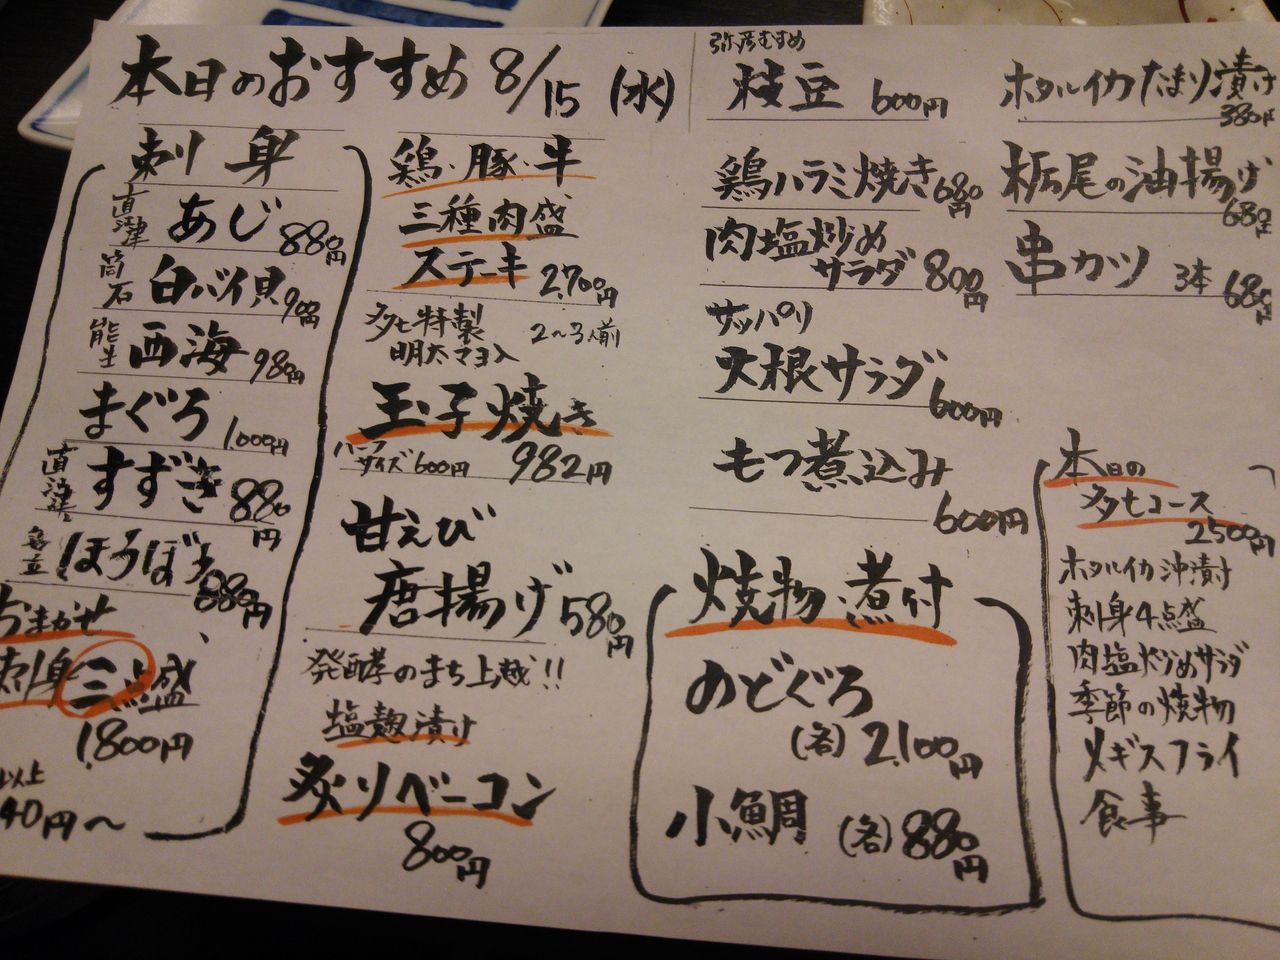 本日のおすすめ 8/15 (水)
刺身
直江津 あじ 880円
筒石 白バイ貝 900円
能生 西海 980円
まぐろ 1,000円
直江津 すずき 880円
ほうぼう 880円
おまかせ
刺身三点盛
1,800円
以上
40円〜
鶏・豚・牛
三種肉盛
ステーキ 2,700円
2〜3人前
多七特製
明太マヨ入
玉子焼き
ハーフサイズ600円 982円
甘えび
唐揚げ 580円
発酵のまち上越!!
塩麹漬け
炙りベーコン
800円
弥彦むすめ
枝豆 600円
鶏ハラミ焼き 680円
肉塩炒め
サラダ 800円
サッパリ
大根サラダ 600円
もつ煮込み
600円
焼物・煮付
のどぐろ
(各) 2,100円
小鯛 (各) 880円
ホタルイカたまり漬け
380円
栃尾の油揚げ
680円
串カツ 3本 680円
本日の
多七コース
2500円
ホタルイカ沖漬け
刺身4点盛
肉塩炒めサラダ
季節の焼物
メギスフライ
食事